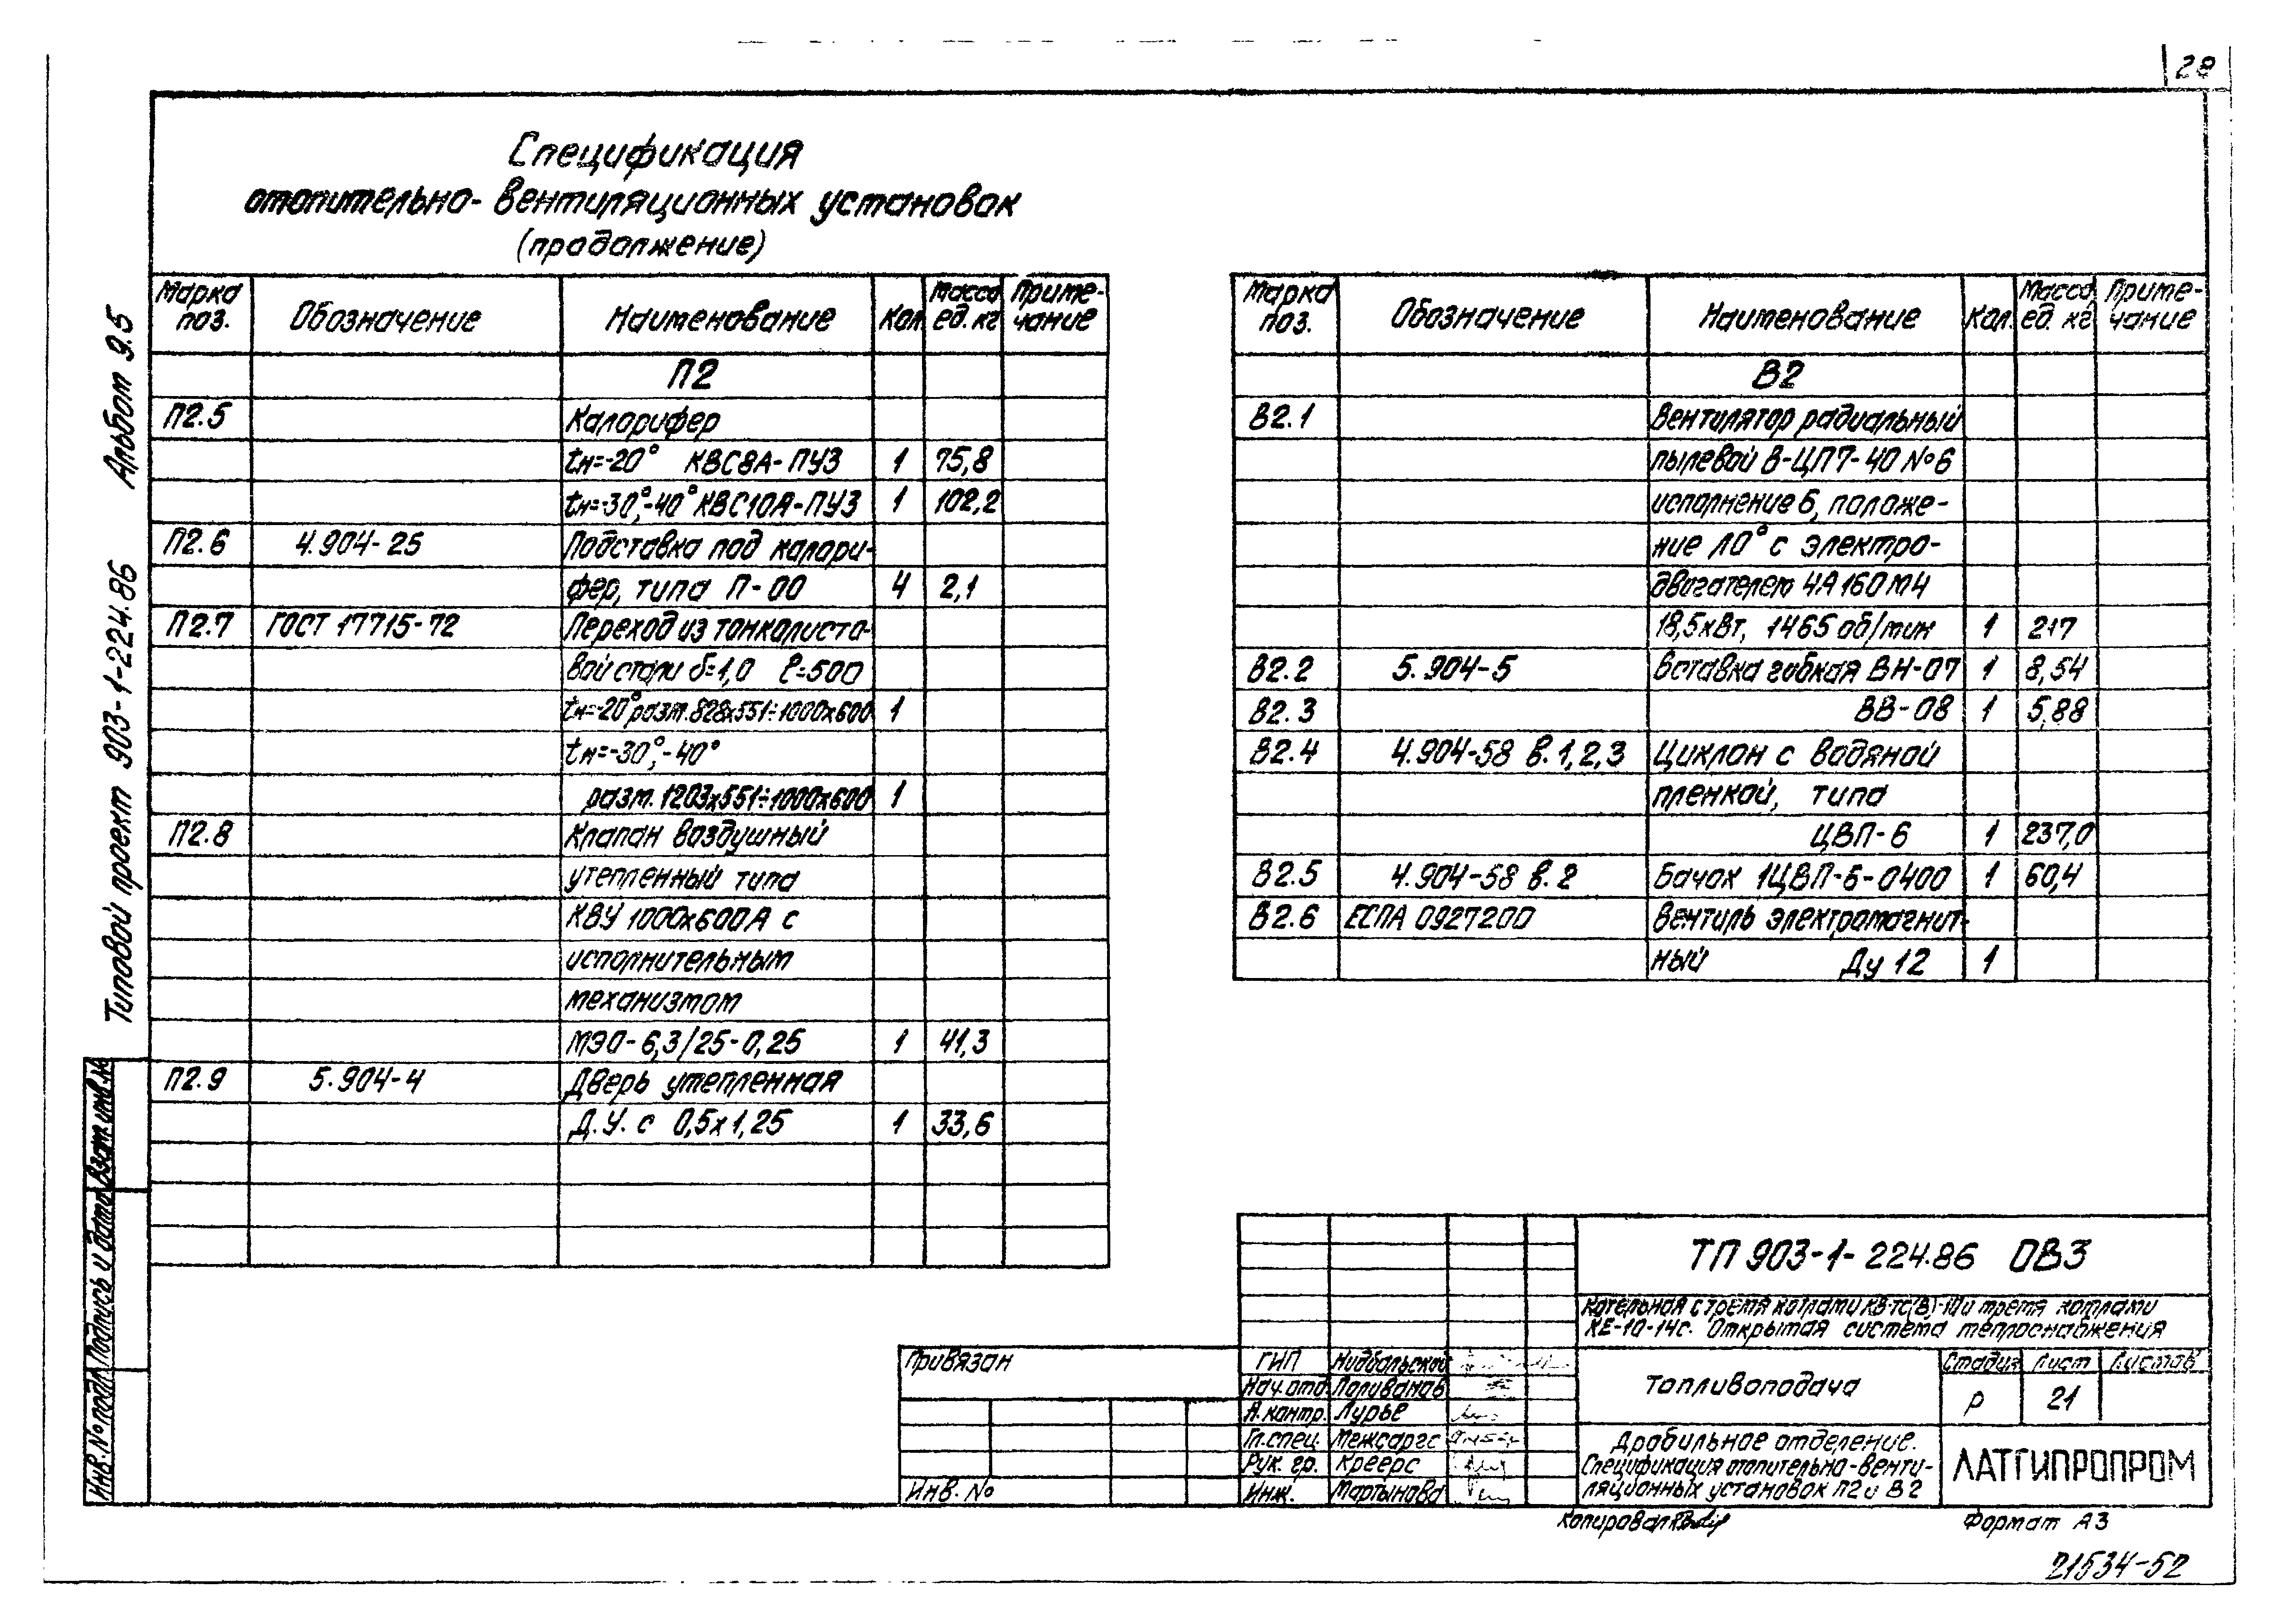 28
Спецификация
отопительно-вентиляционных установок
(продолжение)
Марка поз. Обозначение Наименование Кол Масса ед. кг Примечание
П2
П2.5 Калорифер
tн=-20° КВС8А-ПУЗ 1 75,8
tн=-30°,-40° КВС10А-ПУЗ 1 102,2
П2.6 4.904-25 Подставка под калори-
фер, типа П-00 4 2,1
П2.7 ГОСТ 17715-72 Переход из тонколисто-
вой стали δ=1,0 ℓ=500
tн=-20° разм. 828х551÷1000х600 1
tн=-30°,-40°
разм. 1203х551÷1000х600 1
П2.8 Клапан воздушный
утепленный типа
КВУ 1000х600А с
исполнительным
механизмом
МЭО-6,3/25-0,25 1 41,3
П2.9 5.904-4 Дверь утепленная
Д.У. с 0,5х1,25 1 33,6
Марка поз. Обозначение Наименование Кол. Масса ед. кг Примечание
В2
В2.1 Вентилятор радиальный
пылевой В-ЦП7-40 №6
исполнение 6, положе-
ние Л0° с электро-
двигателем 4А160М4
18,5кВт, 1465 об/мин 1 217
В2.2 5.904-5 Вставка гибкая ВН-07 1 8,54
В2.3 ВВ-08 1 5,88
В2.4 4.904-58 в.1,2,3 Циклон с водяной
пленкой, типа
ЦВП-6 1 237,0
В2.5 4.904-58 в.2 Бачок 1ЦВП-6-0400 1 60,4
В2.6 ЕСПА 0927200 Вентиль электромагнит-
ный Ду 12 1
Альбом 9.5
Типовой проект 903-1-224.86
Взам.инв.№
Подпись и дата
Инв.№подл.
Привязан
Инв. №
ГИП Нидбальский
Нач.отд. Поливанов
Н.контр. Лурье
Гл.спец. Межсаргс
Рук. гр. Креерс
Инж. Мартынова
ТП 903-1-224.86 ОВ3
Котельная с тремя котлами КВ-ТС(В)-10 и тремя котлами
КЕ-10-14с. Открытая система теплоснабжения
Топливоподача
Стадия Лист Листов
Р 21
Дробильное отделение.
Спецификация отопительно-венти-
ляционных установок П2 и В2
ЛАТГИПРОПРОМ
Копировал
Формат А3
21534-52